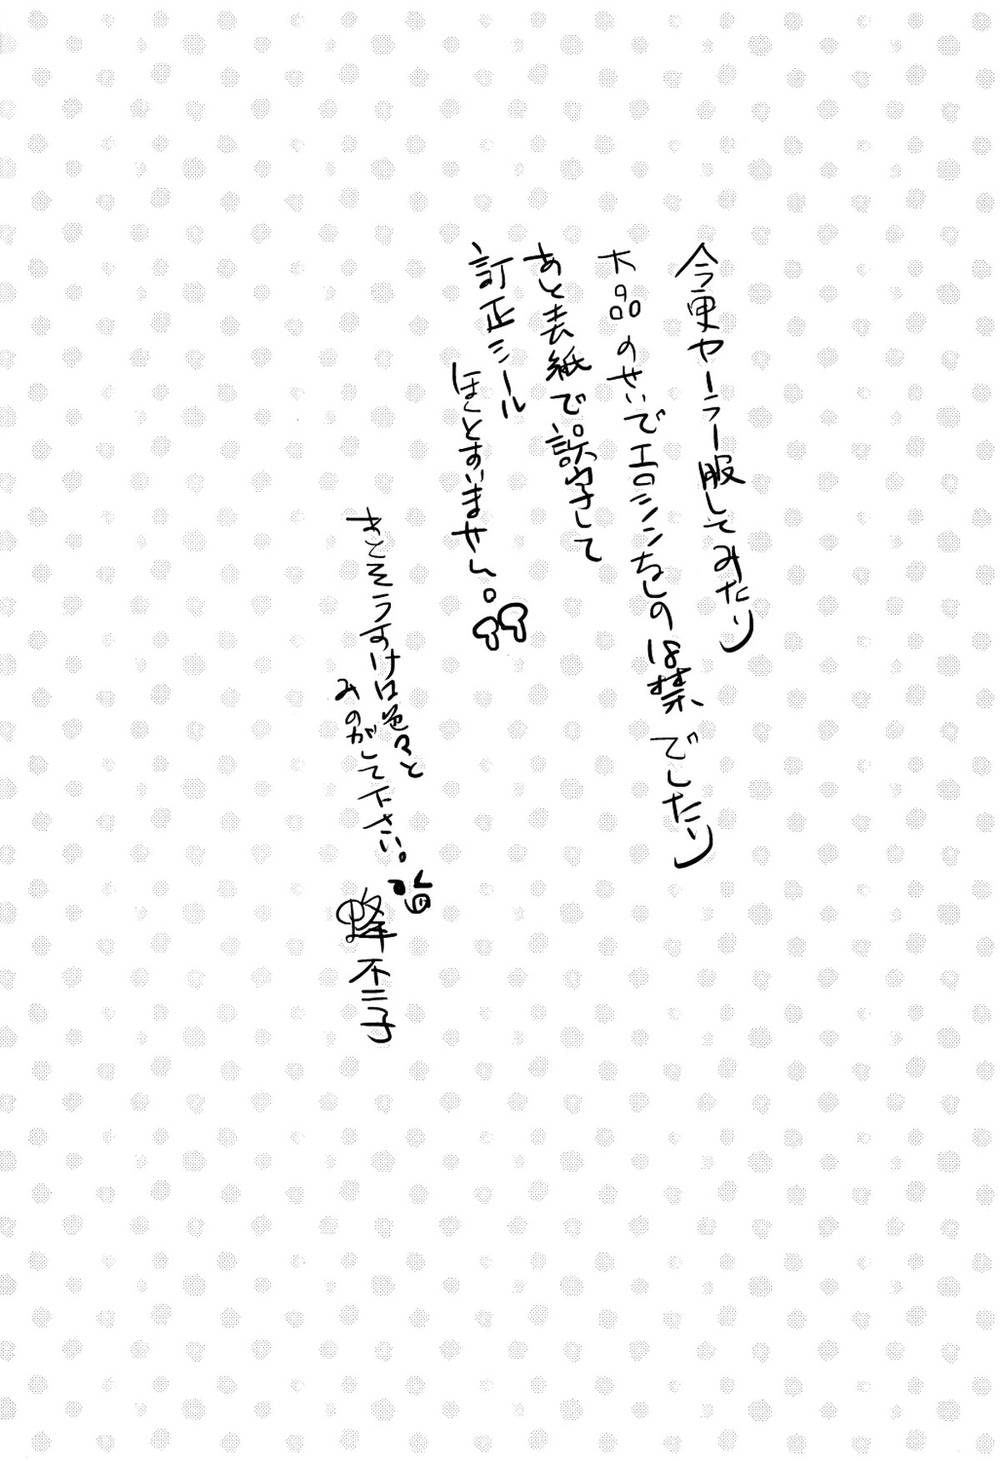 今更セーラー服してみたり
大品のせいでエロシーンなしの18禁でしたり
あと表紙で誤字して
訂正シール
ほんとすいません。
きそうすけは色々と
みのがして下さい。
蜂不二子